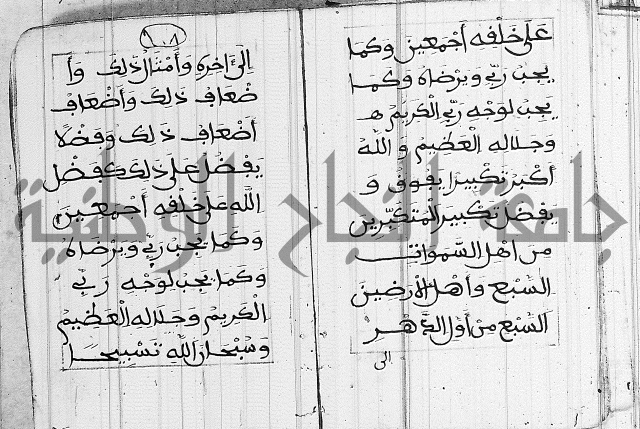 على خلفه أجمعين وكما
يحب ربي ويرضاه وكما
يحب لوجه ربي الكريم
وجلاله العظيم والله
أكبر تكبيرا يفوق و
يفضل تكبير المتكبرين
من أهل السموات
السبع وأهل الأرضين
السبع من أول الدهر
الى
١٠٨
إلى ءاخره وأمثال ذلك وأ
ضعاف ذلك وأضعاف
أضعاف ذلك وفضلا
يفضل على ذلك كفضل
الله على خلفه أجمعين
وكما يحب ربي ويرضاه
وكما يحب لوجه ربي
الكريم وجلاله العظيم
وسبحان الله تسبيحا
جامعة النجاح الوطنية